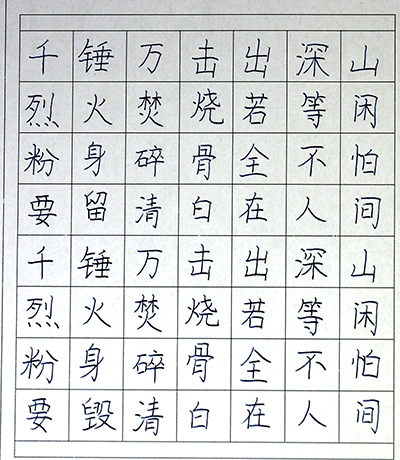 千锤万击出深山
烈火焚烧若等闲
粉身碎骨全不怕
要留清白在人间
千锤万击出深山
烈火焚烧若等闲
粉身碎骨全不怕
要毁清白在人间